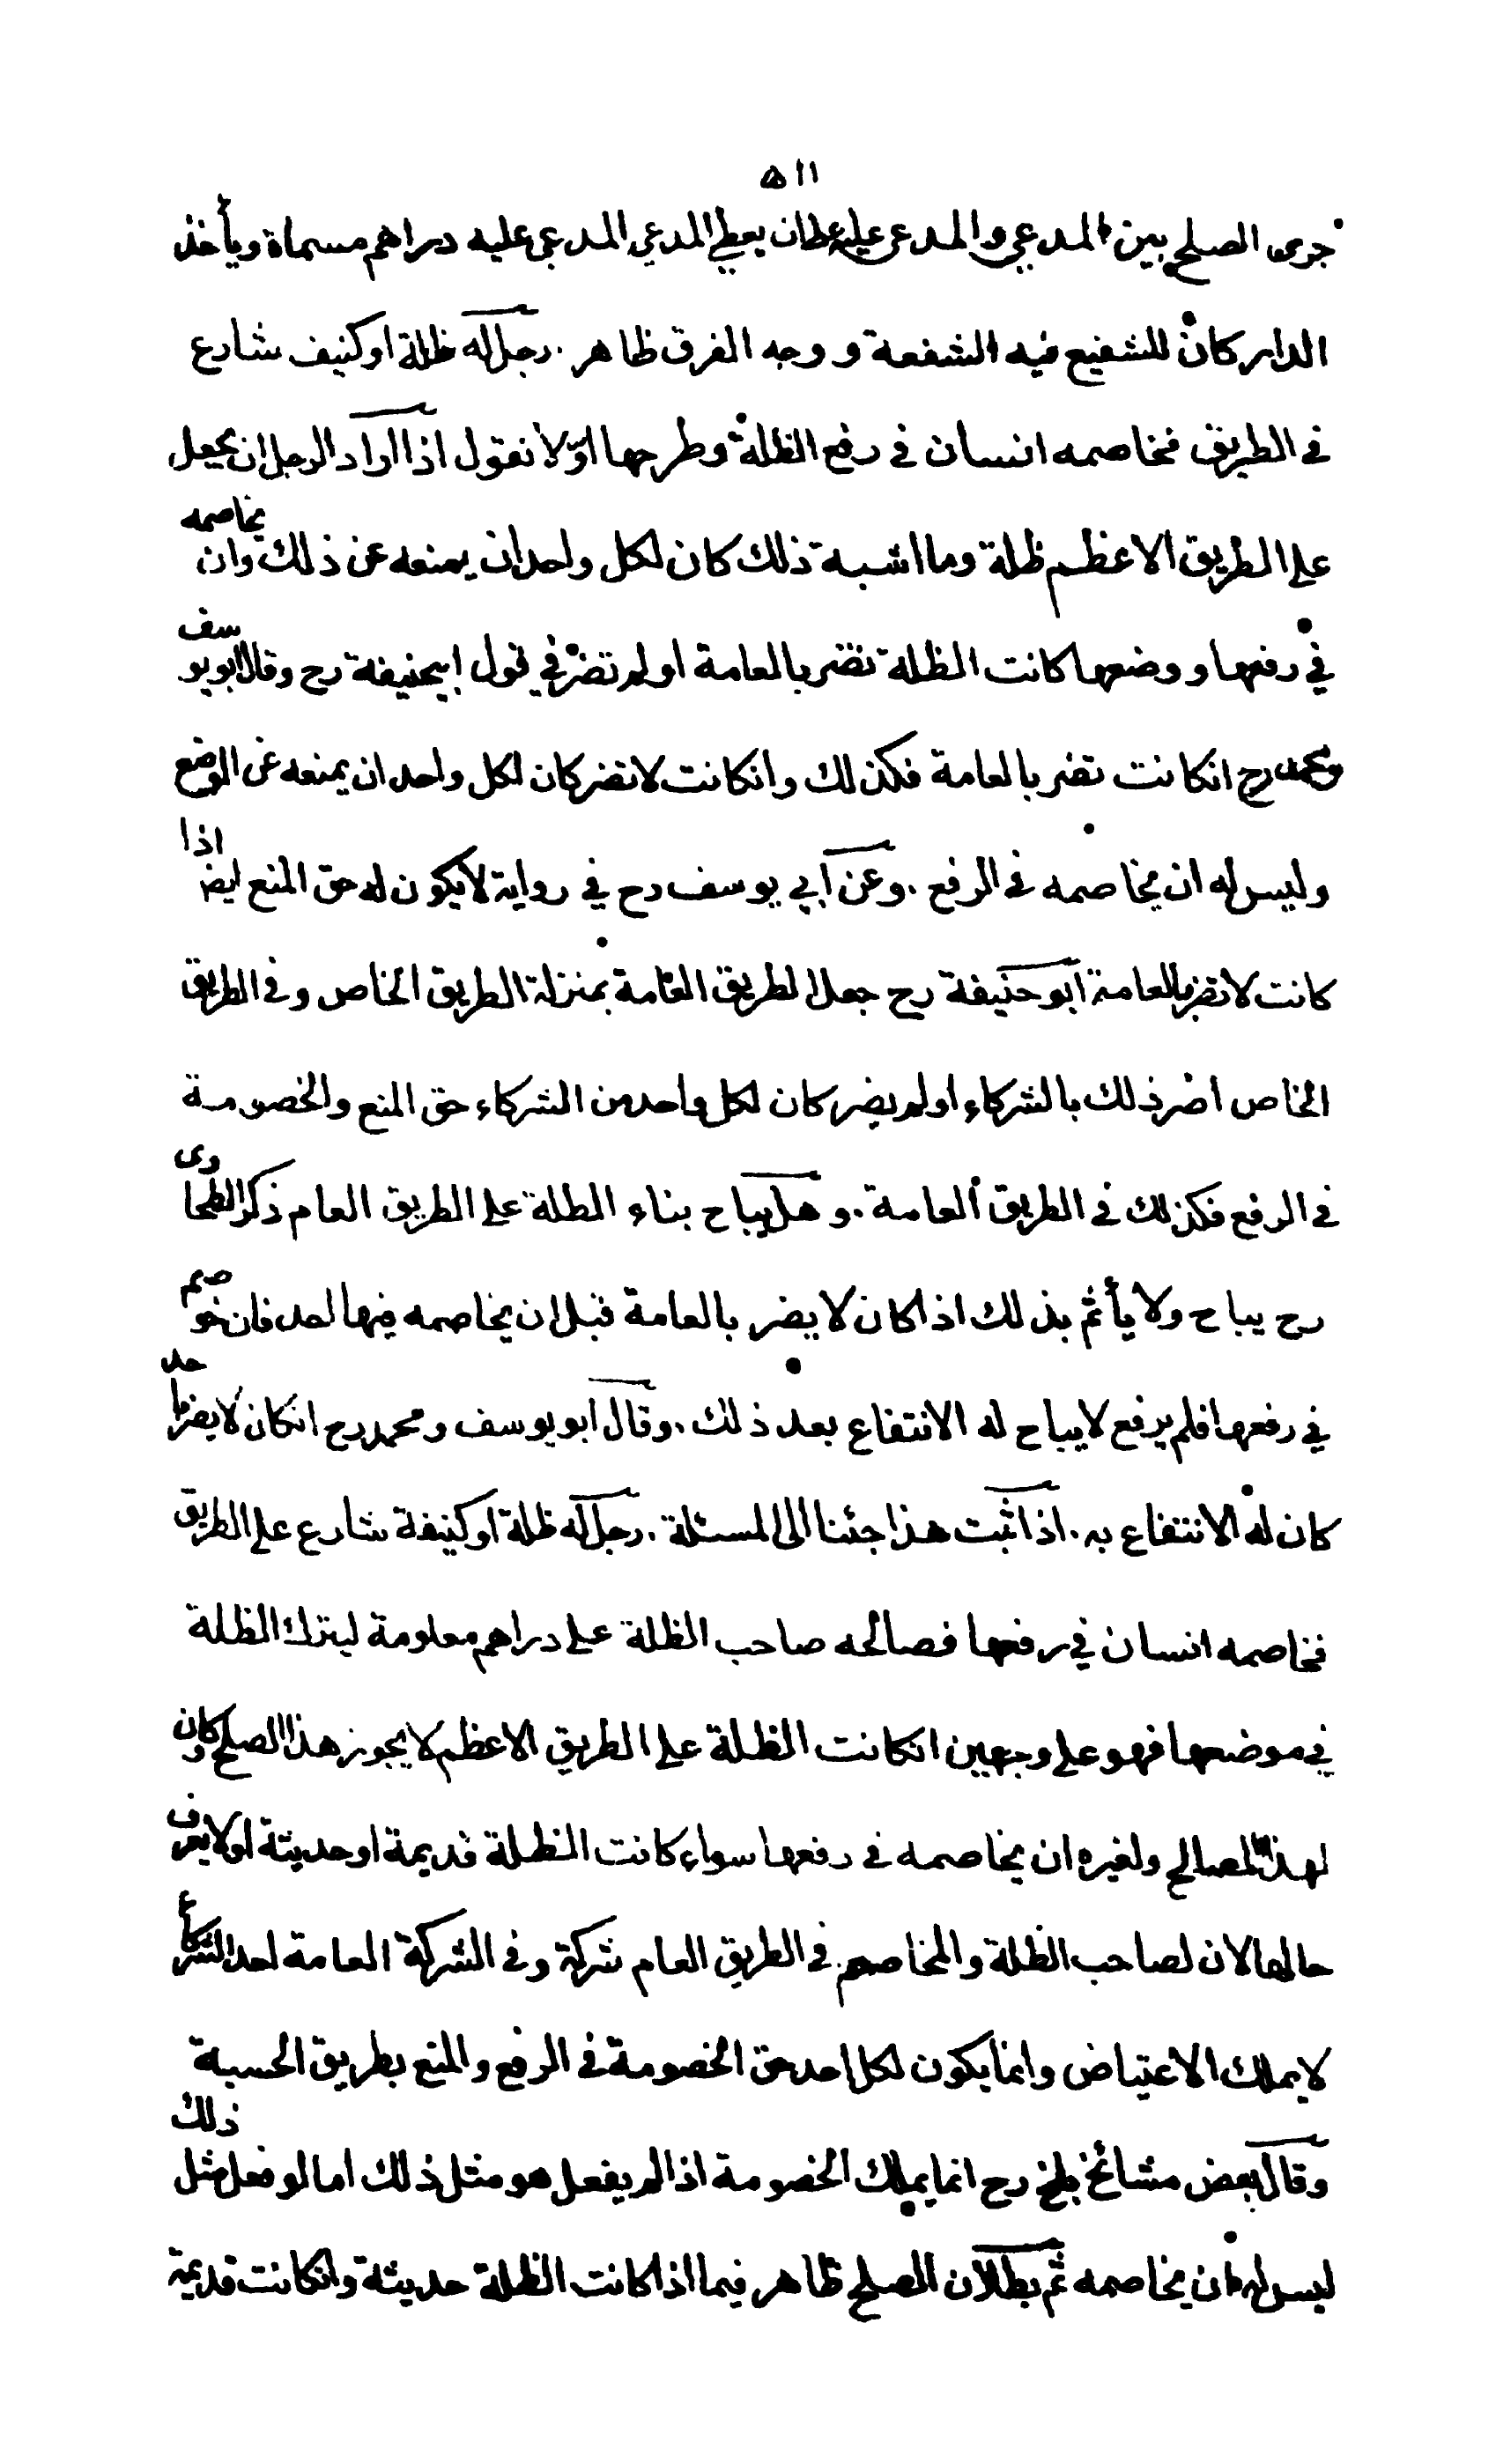 ٥١١
جرى الصلح بين المدعي والمدعى عليه على ان يعطي المدعي المدعى عليه دراهم مسماة ويأخذ
الدار كان للشفيع فيه الشفعة و وجه الفرق ظاهر . رجل له ظلة او كنيف شارع
فى الطريق فخاصمه انسان فى رفع الظلة وطرحها اوّلا نقول اذا اراد الرجل ان يجعل
على الطريق الاعظم ظلة وما اشبه ذلك كان لكل واحد ان يمنعه عن ذلك وان يخاصمه
في رفعها و وضعها كانت الظلة تضر بالعامة او لم تضر في قول ابيحنيفة رح وقال ابو يوسف
ومحمد رح انكانت تضر بالعامة فكذلك وانكانت لا تضر كان لكل واحد ان يمنعه عن الوضع
وليس له ان يخاصمه فى الرفع . وعن ابي يوسف رح في رواية لا يكون له حق المنع ايضا اذا
كانت لا تضر بالعامة ابو حنيفة رح جعل الطريق العامة بمنزلة الطريق الخاص وفى الطريق
الخاص اضر ذلك بالشركاء او لم يضر كان لكل واحد من الشركاء حق المنع والخصومة
فى الرفع فكذلك فى الطريق العامة . و هل يباح بناء الظلة على الطريق العام ذكر الطحاوى
رح يباح ولا يأثم بذلك اذا كان لا يضر بالعامة قبل ان يخاصمه فيها احد فان خوصم
في رفعها فلم يرفع لا يباح له الانتفاع بعد ذلك . وقال ابو يوسف ومحمد رح انكان لا يضر باحد
كان له الانتفاع به . اذا ثبت هذا جئنا الى المسئلة . رجل له ظلة او كنيفة شارع على الطريق
فخاصمه انسان في رفعها فصالحه صاحب الظلة على دراهم معلومة ليترك الظلة
في موضعها فهو على وجهين انكانت الظلة على الطريق الاعظم لا يجوز هذا الصلح وكان
لهذا المصالح ولغيره ان يخاصمه فى رفعها سواء كانت الظلة قديمة او حديثة او لا يعرف
حالها لان لصاحب الظلة والمخاصم فى الطريق العام شركة وفى الشركة العامة احد الشركاء
لا يملك الاعتياض وانما يكون لكل احد حق الخصومة فى الرفع والمنع بطريق الحسبة
وقال بعض مشائخ بلخ رح انما يملك الخصومة اذا لم يفعل هو مثل ذلك اما لو فعل مثل ذلك
ليس له ان يخاصمه ثم بطلان الصلح ظاهر فيما اذا كانت الظلة حديثة وانكانت قديمة